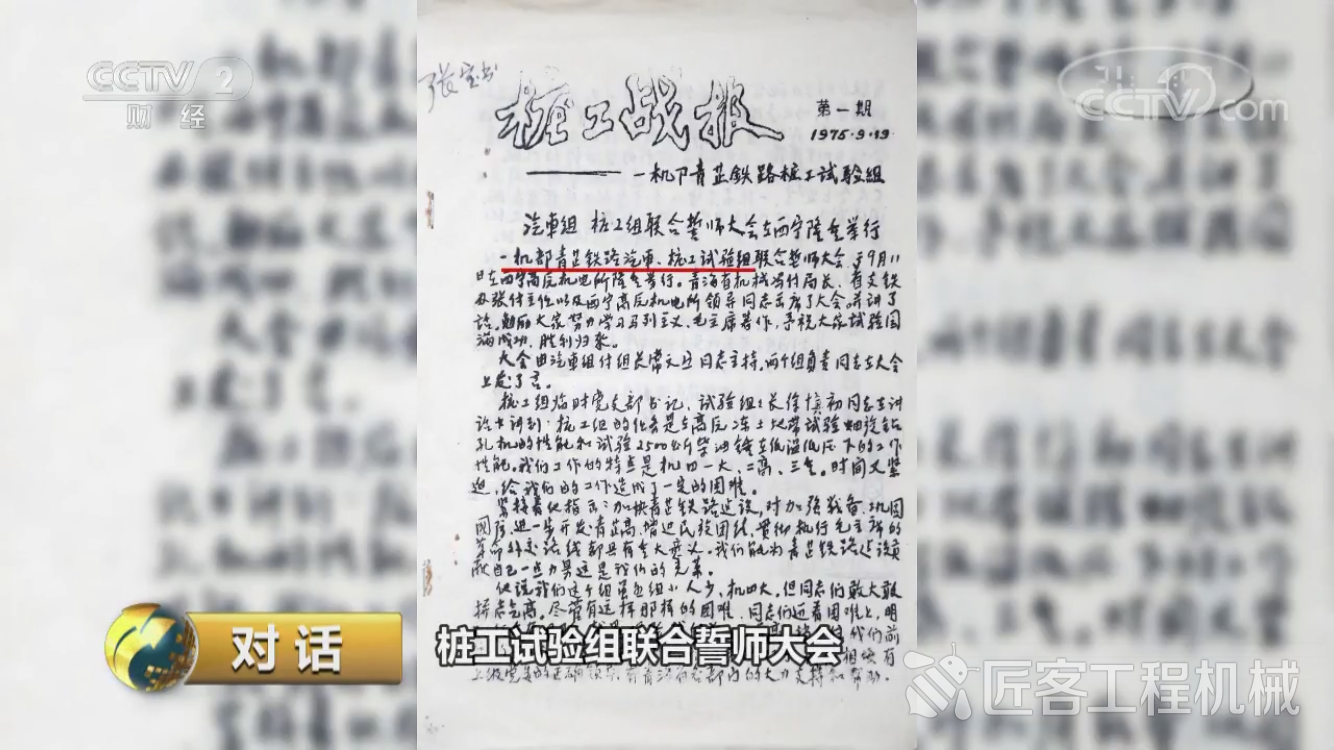 CCTV 2
财 经
CCTV.com
张宝书
桩工战报
第一期
1975.9.19
——一机部青芷铁路桩工试验组
汽車组 桩工组联合誓师大会在西宁隆重举行
一机部青芷铁路汽車、桩工试验组联合誓师大会,于9月11
日在西宁高反机电所隆重举行。青海省机械局付局长、省支铁
办张付主任以及西宁高反机电所领导同志出席了大会,并讲了
话。勉励大家努力学习马列主义、毛主席著作,予祝大家试验园
满成功,胜利归来。
大会由汽車组付组长常文
同志主持。两个组负责同志在大会
上发了言。
桩工组临时党支部书记、试验组组长徐慎初同志在讲
话中讲到:桩工组的任务是在高反冻土地带试验
钻
孔机的性能和试验2500公斤柴油锤在低温低压下的工作
性能。我们工作的特点是机四一大、二高、三重。时间又紧
迫,给我们的工作造成了一定的困难。
紧接着他指示:加快青芷铁路建设,对加强战备、巩固
国防、进一步开发青芷高、增进民族团结、贯彻执行毛主席的
革命外交路线都具有重大意义。我们能为青芷铁路建设贡
献自己一些力量这是我们的光荣。
他说我们这个组虽包组小人少,机四大。但同志们敢大敢
拼志气高,尽管有这样那样的困难,同志们迎着困难上,明
我们前
上级党委的正确领导,有青海省
部门的大力支持和帮助。
对 话
桩工试验组联合誓师大会
匠客工程机械